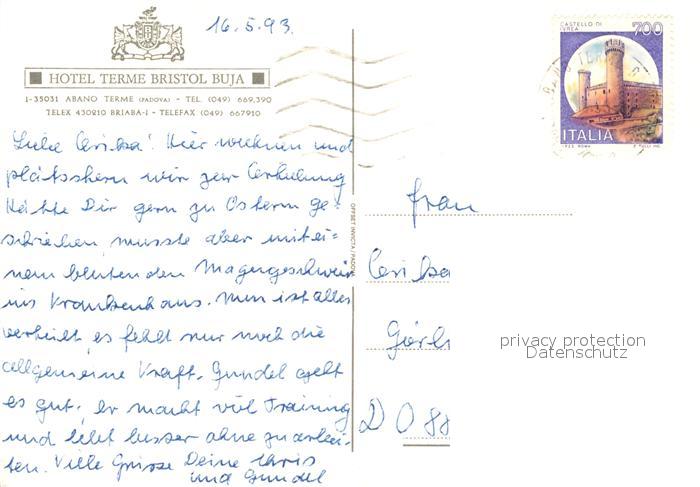 16.5.93.
HOTEL TERME BRISTOL BUJA
I-35031 ABANO TERME (PADOVA) - TEL. (049) 669.390
TELEX 430210 BRIABA-I - TELEFAX (049) 667910
Liebe Cerika! Hier wohnen und
plätschern wir zur Erholung
Hätte Dir gern zu Ostern ge-
schrieben, musste aber mit ei-
nem blutenden Magengeschwür
ins Krankenhaus. Nun ist alles
verheilt, es fehlt nur noch die
allgemeine Kraft. Gundel geht
es gut. Er macht viel Training
und lebt besser ohne zu arbei-
ten. Viele Grüsse Deine Chris
und Gundel
OFFSET INVICTA / PADOVA
CASTELLO DI
IVREA
700
ITALIA
Frau
Cerika
Görli
D O 88
privacy protection
Datenschutz